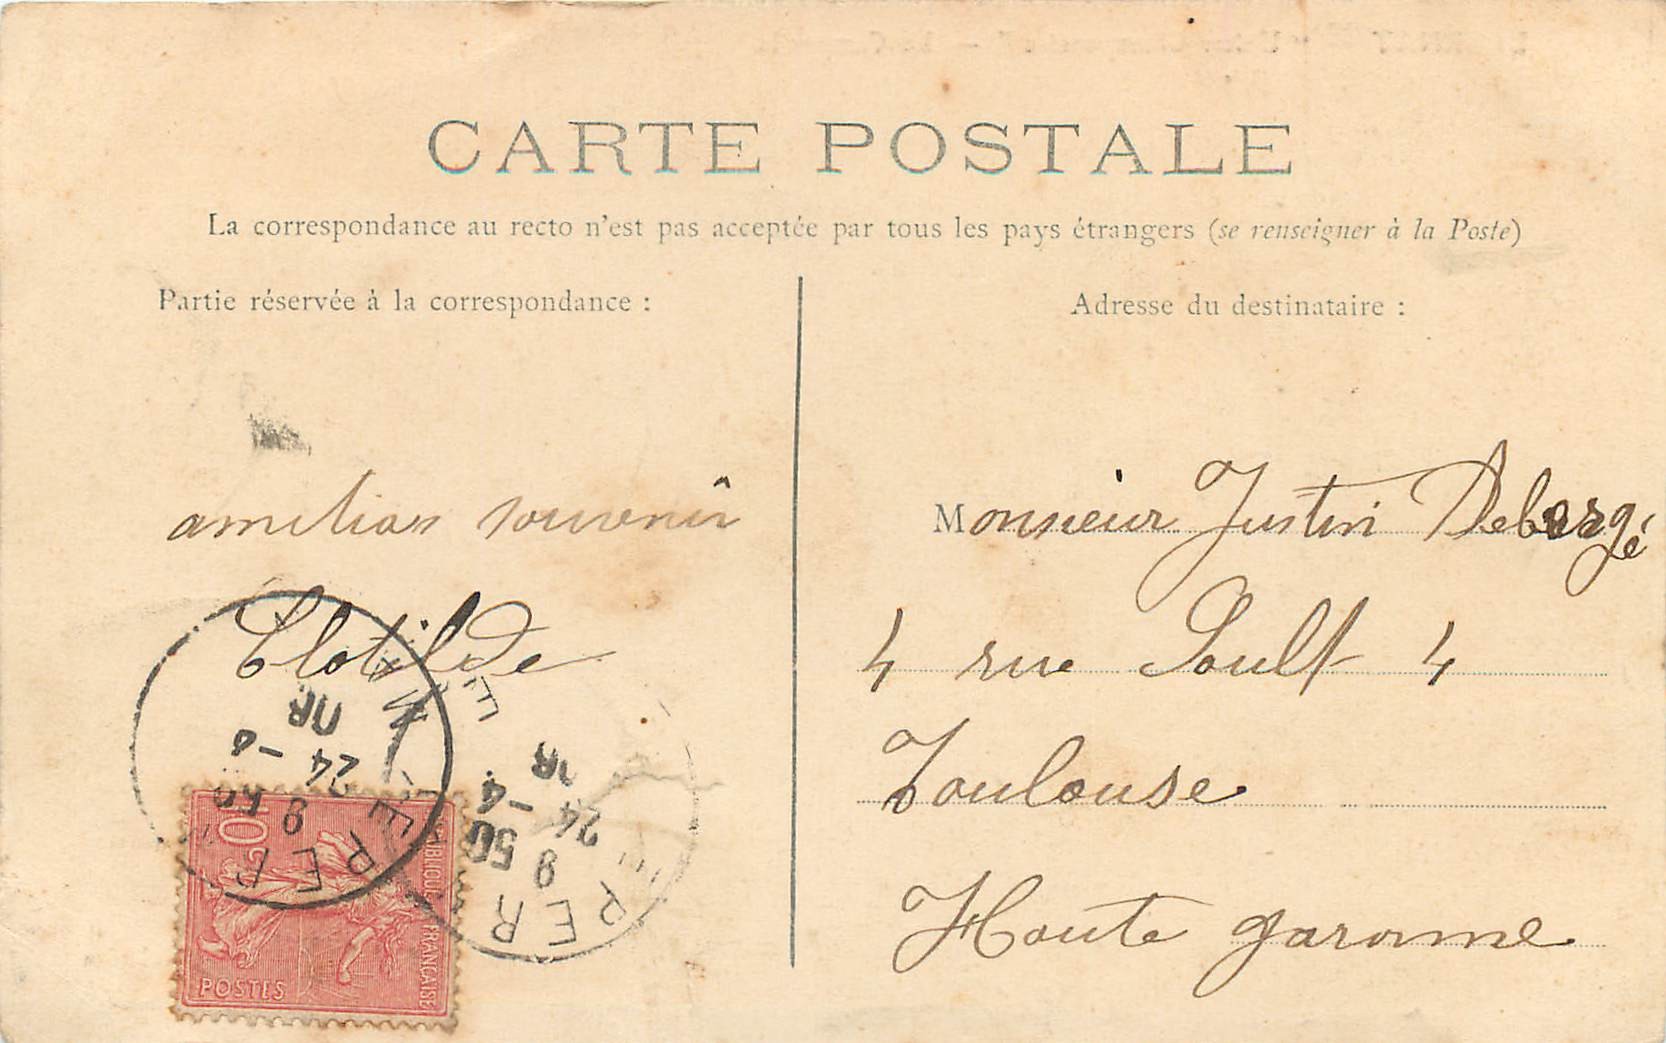 CARTE POSTALE
La correspondance au recto n'est pas acceptée par tous les pays étrangers (se renseigner à la Poste)
Partie réservée à la correspondance :
amitias souvenir
Clotilde
Adresse du destinataire :
Monsieur Justin Debergé
4 rue Soult 4
Toulouse
Haute garonne
RÉPUBLIQUE FRANÇAISE
POSTES
10
24 - 4
8 50
24 - 4